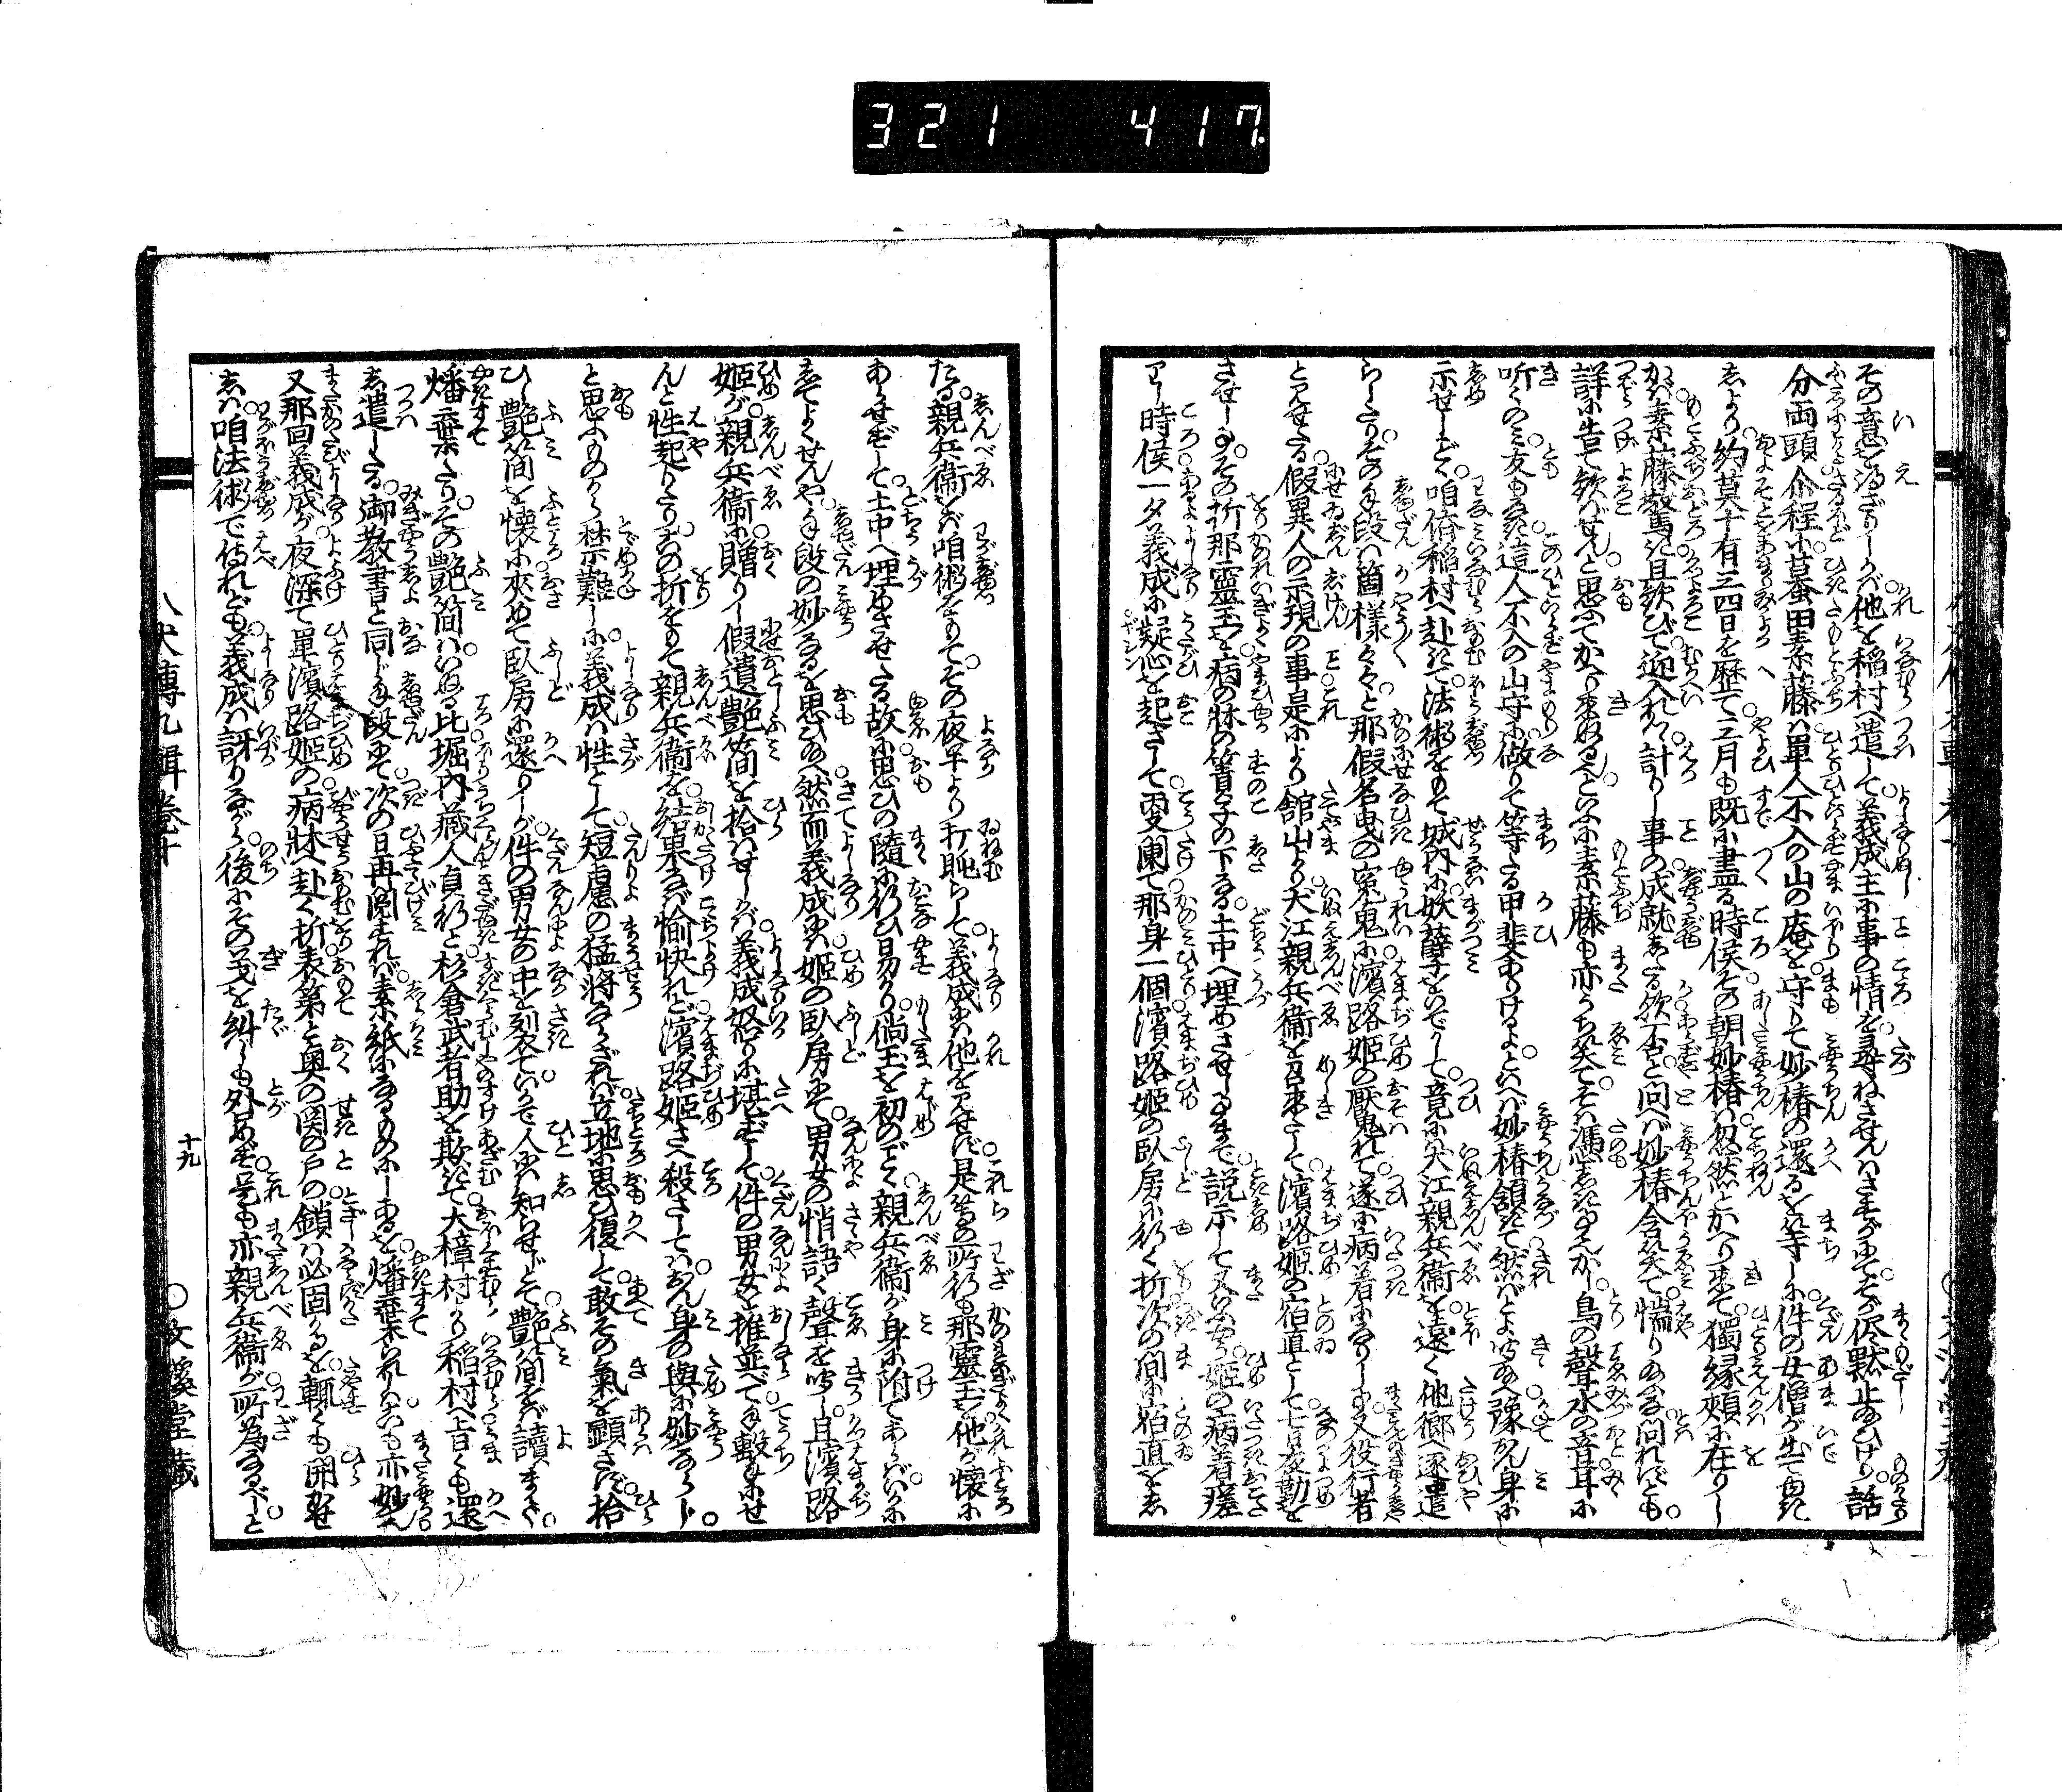 321 417
その意を得ざりしかバ他を稲村へ遣して義成主に事の情を尋ねさせんハさすがにてそが侭黙止給ひけり話
分両頭尒程に蟇田素藤ハ單人不入の山の庵を守りて妙椿の還るを等しに件の女僧が出て由
しより約莫十有三四日を歴て三月も既に盡る時候その朝妙椿ハ忽然とかへり来て獨縁頬に在りし
かバ素藤驚き且歓びて迎入れバ計りし事の成就したる歟否と問ヘバ妙椿含笑て惴り給ふな問れずとも
詳に告て歓バせんと思ふてかへり来ぬるぞといふに素藤も亦うち笑てそハ憑しきことぞかし鳥の聲水の音耳に
听くのミ友もなき這人不入の山守に做りて等たる甲斐ありけるよといへバ妙椿頷きて然バとよ听給へ豫御身に
示せしごとく咱儕稲村へ赴きて法術をもて城内に妖孽をいでかして竟に犬江親兵衛を遠く他郷へ逐遣
らしたりその手段ハ箇様々々と那假名曳の寃鬼に濱路姫の魘鬼れて遂に病着になりしに又役行者
と見せたる假異人の示現の事是により舘山より犬江親兵衛を召来して濱路姫の宿直として七日夜勤を
させし事その折那靈玉を病の牀の簀子の下なる土中へ埋めさせし事まで説示して又いふやう姫の病着瘥
りし時候一夕義成に疑心を起さして更闌て那身一個濱路姫の臥房に行く折次の間に宿直をし
たる親兵衛をバ咱術をもてその夜早より打睡らして義成にハ他を見せず是等の所行も那靈玉を他が懐に
あらせずして土中へ埋めさせたる故に思ひの隨に行ひ易かり倘玉を初のごとく親兵衛が身に附てあらバいかに
してよくせんや手段の妙なるを思ひ給へ然而義成にハ姫の臥房にて男女の悄語く聲を听し且濱路
姫が親兵衛に贈りし假遺艶簡を拾ハせしかバ義成怒りに堪ずして件の男女を推並べて手撃にせ
んと性起りたりその折をもて親兵衛を結果なバ愉快れど濱路姫さへ殺さしてハおん身の與に妙ならじ
と思ふものから禁難しに義成ハ性として短慮の猛將ならざれバ立地に思ひ復して敢その氣を顕さず拾
ひし艶簡を懐に夾めて臥房に還りしが件の男女の中を裂ていかで人にハ知らせじとて艶簡をバ讀もまたで
燔棄たりその艶簡ハいぬる比堀内蔵人貞行と杉倉武者助を欺きて大樟村より稲村へ旨くも還
し遣したる御教書と同じ手段にて次の日再閲すれバ素紙になるものにしあるを燔棄られしハ是も亦妙也
又那回義成が夜深て單濱路姫の病牀へ赴く折表第と奥の関の戸の鎖ハ必固かるを輙くも開せ
しハ咱法術で侍れども義成ハ訝りながら後にその義を糾しも外さず是も亦親兵衛が所為なるべしと
八犬傳九輯巻十
十九
〇文溪堂藏